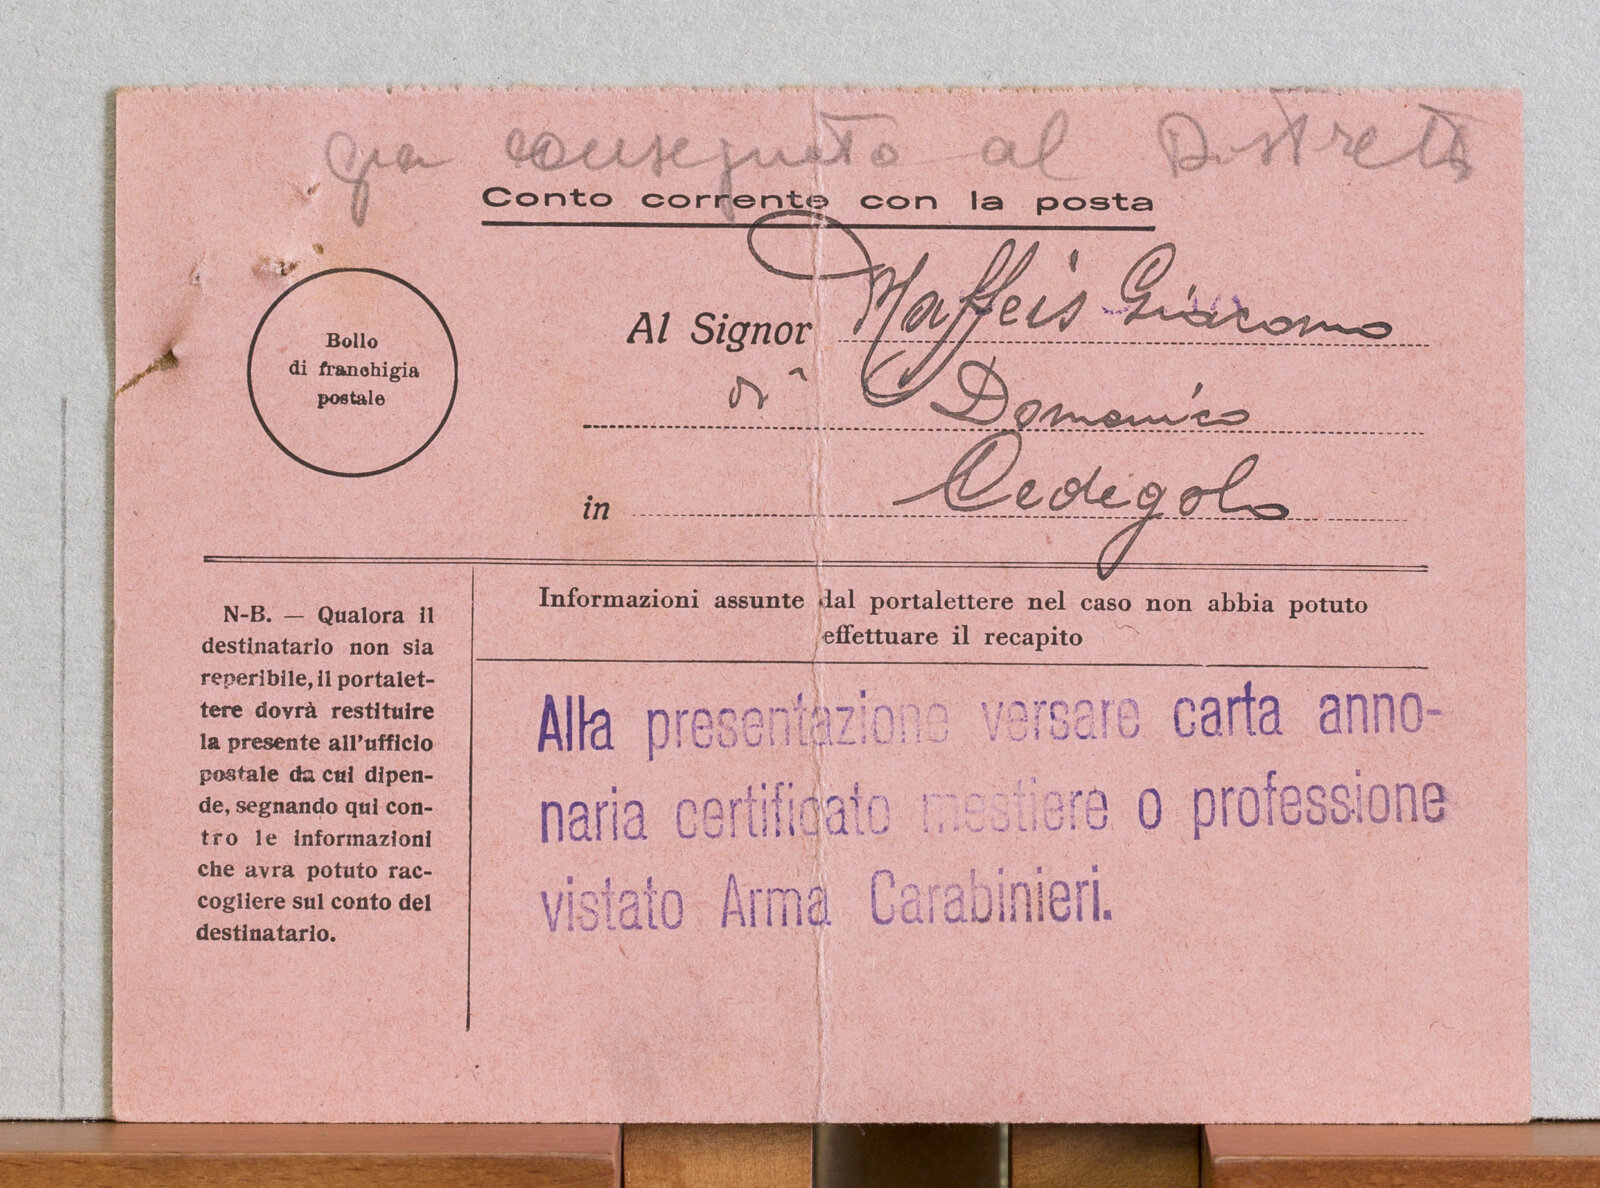 già consegnato al Distretto
Conto corrente con la posta
Bollo
di franchigia
postale
Al Signor Maffeis Giacomo
di Domenico
in Cedegolo
N-B. — Qualora il
destinatario non sia
reperibile, il portalet-
tere dovrà restituire
la presente all'ufficio
postale da cui dipen-
de, segnando qui con-
tro le informazioni
che avrà potuto rac-
cogliere sul conto del
destinatario.
Informazioni assunte dal portalettere nel caso non abbia potuto
effettuare il recapito
Alla presentazione versare carta anno-
naria certificato mestiere o professione
vistato Arma Carabinieri.